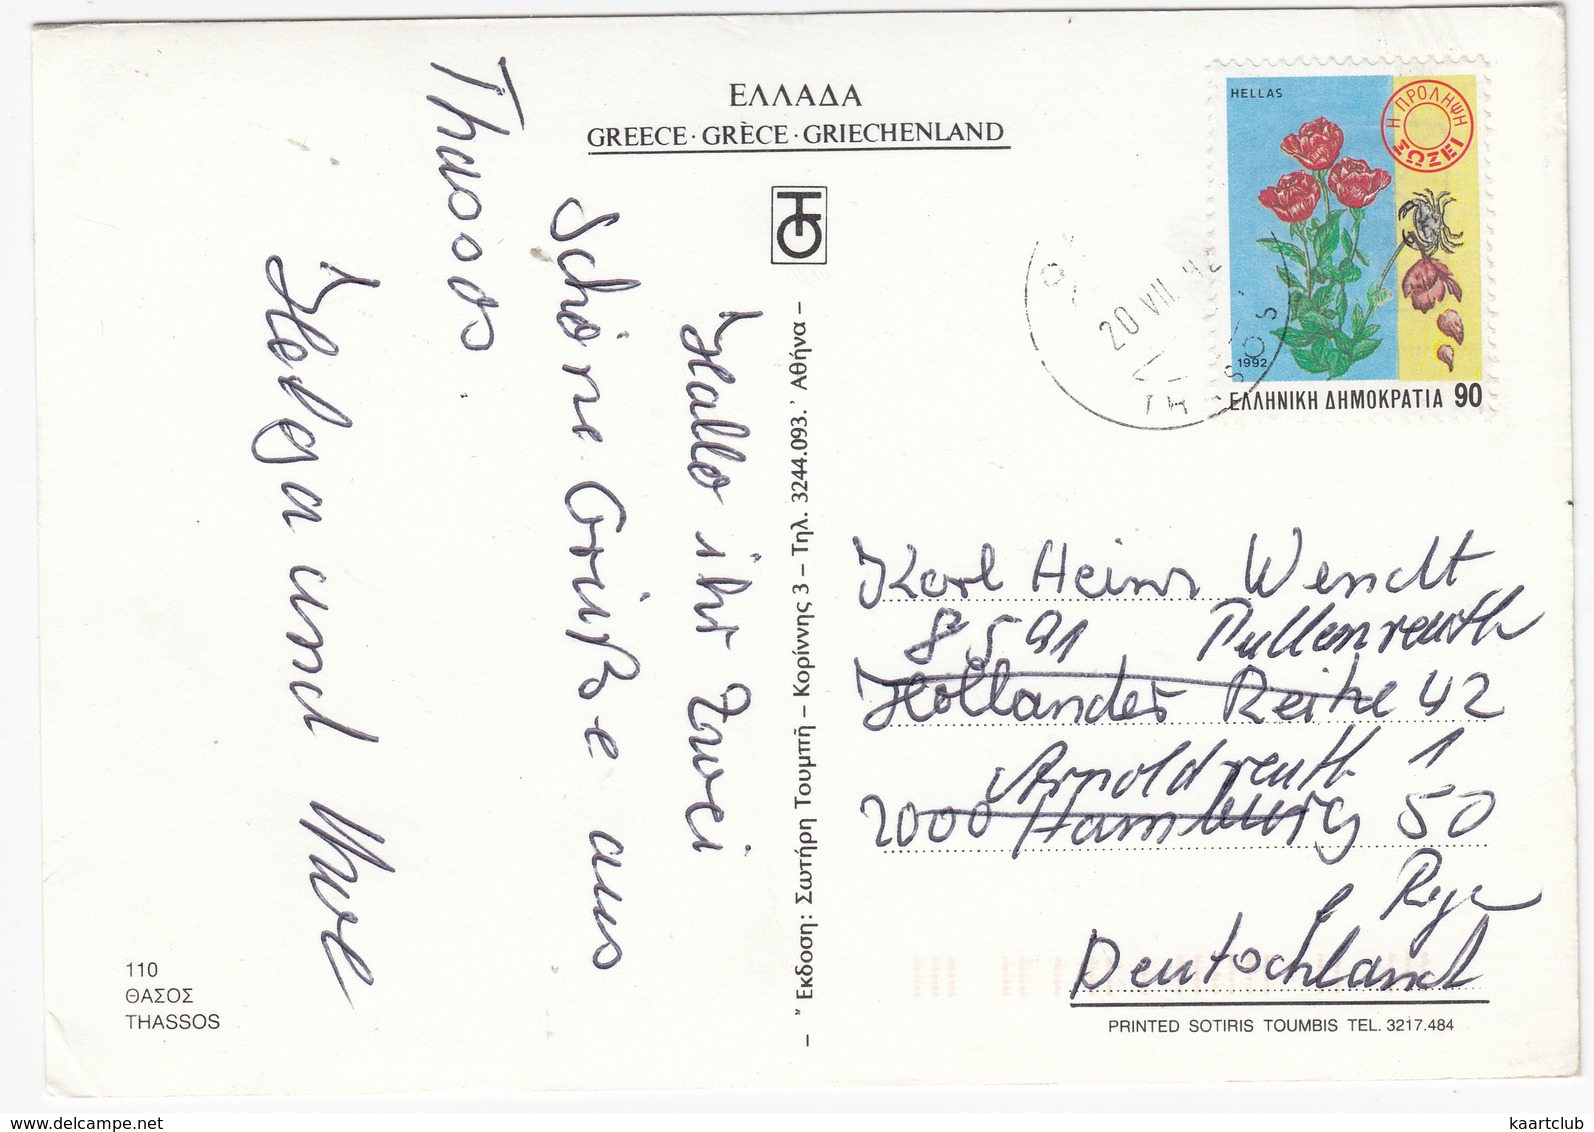 ΕΛΛΑΔΑ
GREECE · GRÈCE · GRIECHENLAND
HELLAS
Η ΠΡΟΛΗΨΗ ΣΩΖΕΙ
1992
ΕΛΛΗΝΙΚΗ ΔΗΜΟΚΡΑΤΙΑ 90
20 VII. 92
TH SSOS
Hallo ihr Zwei
Schöne Grüße aus
Thassos.
Helga und Uwe
– " Έκδοση: Σωτήρη Τουμπή – Κορίννης 3 – Τηλ. 3244.093.' Αθήνα –
Karl Heinz Wendt
8591 Pullenreuth
Holländer Reihe 42
Arnoldreuth 1
2000 Hamburg 50
Deutschland
PRINTED SOTIRIS TOUMBIS TEL. 3217.484
110
ΘΑΣΟΣ
THASSOS
www.delcampe.net
kaartclub